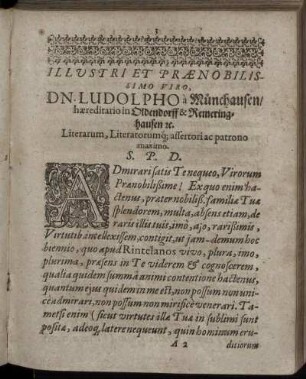 3
ILLUSTRI ET PRÆNOBILIS-
SIMO VIRO,
DN. LUDOLPHO à Münchausen/
hæreditario in Oldendorff & Remering-
hausen ꝛc.
Literarum, Literatorumq; assertori ac patrono
S. P. D.
ADmirari satis Te nequeo, Virorum
Prænobilissime! Ex quo enim ha-
ctenus, præter nobiliss. familiæ Tuæ
splendorem, multa, absens etiam, de
raris illis tuis, imò, ajo, rarissimis,
Virtutib9 intellexissem, contigit, ut jam demum hoc
biennio, quo apud Rintelanos vivo, plura, imò,
plurima, præsens in Te viderem & cognoscerem,
qualia quidem summâ animi contentione hactenus,
quantum ejus quidem in me est, non possum non uni-
cè admirari, non possum non mirificè venerari. Ta-
metsi enim (sicut virtutes illæ Tuæ in sublimi sunt
positæ, adeoq; latere nequeunt, quin hominum eru-
A 2 ditiorum